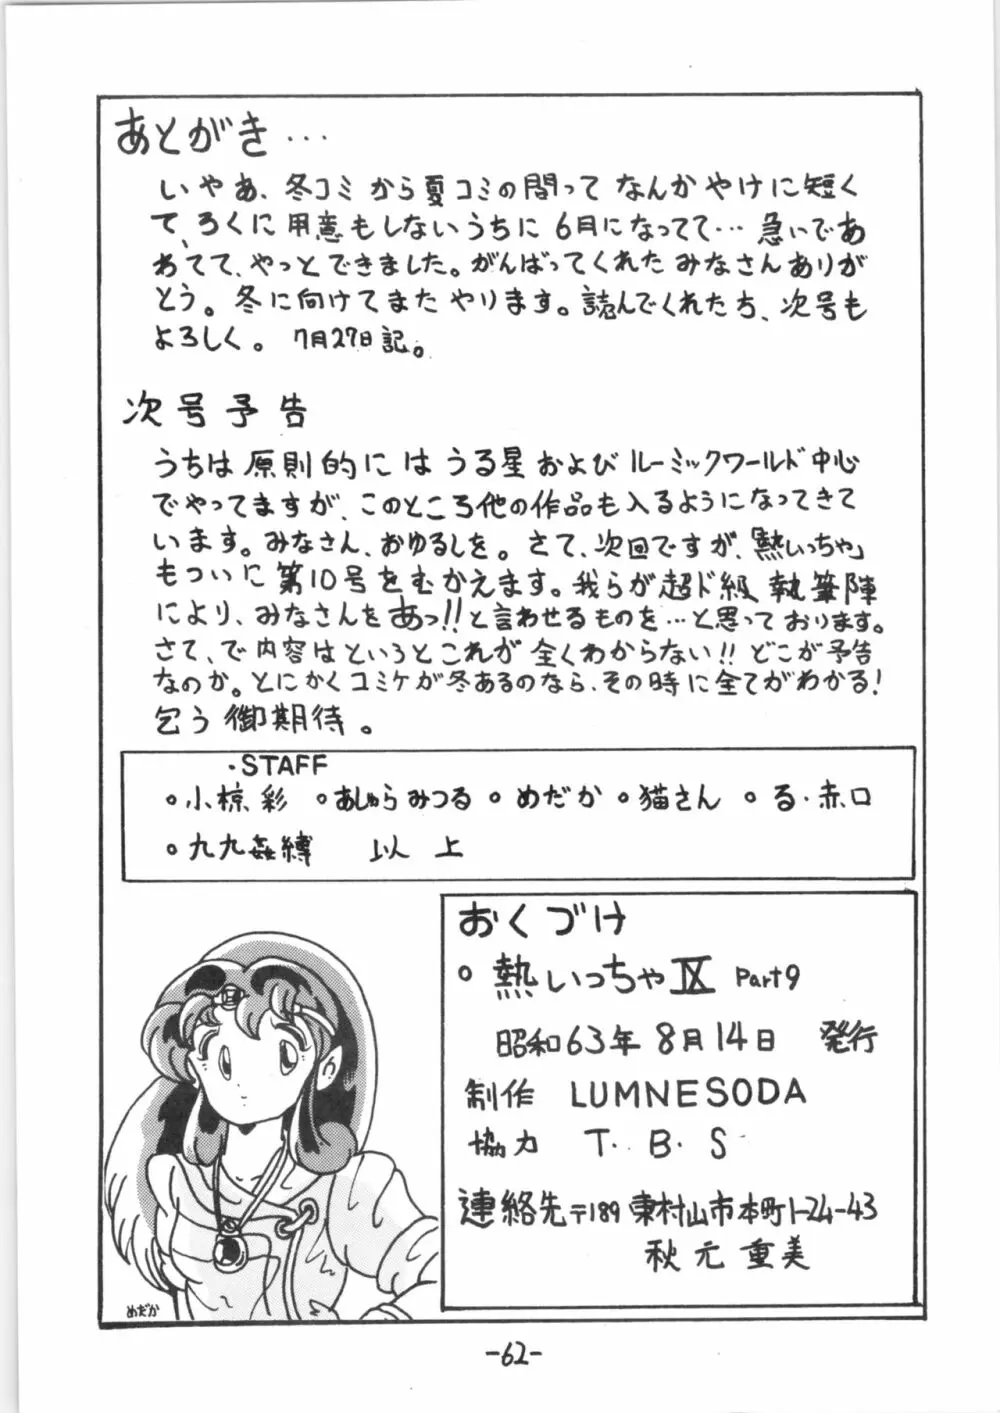 あとがき…
いやあ、冬コミから夏コミの間ってなんかやけに短く
て、ろくに用意もしないうちに6月になってて…急いであ
わてて、やっとできました。がんばってくれたみなさんありが
とう。冬に向けてまたやります。読んでくれたち、次号も
よろしく。7月27日記。
次号予告
うちは原則的にはうる星およびルーミックワールド中心
でやってますが、このところ他の作品も入るようになってきて
います。みなさん、おゆるしを。さて、次回ですが、「熱いっちゃ」
もついに第10号をむかえます。我らが超ド級執筆陣
により、みなさんをあっ!!と言わせるものを…と思っております。
さて、で内容はというとこれが全くわからない!!どこが予告
なのか。とにかくコミケが冬あるのなら、その時に全てがわかる!
乞う御期待。
・STAFF
○小椋彩 ○あしゅらみつる ○めだか ○猫さん ○る・赤口
○九九姦縛 以上
おくづけ
○熱いっちゃⅨ Part9
昭和63年8月14日 発行
制作 LUMNESODA
協力 T.B.S
連絡先〒189東村山市本町1-24-43
秋元重美
めだか
-62-